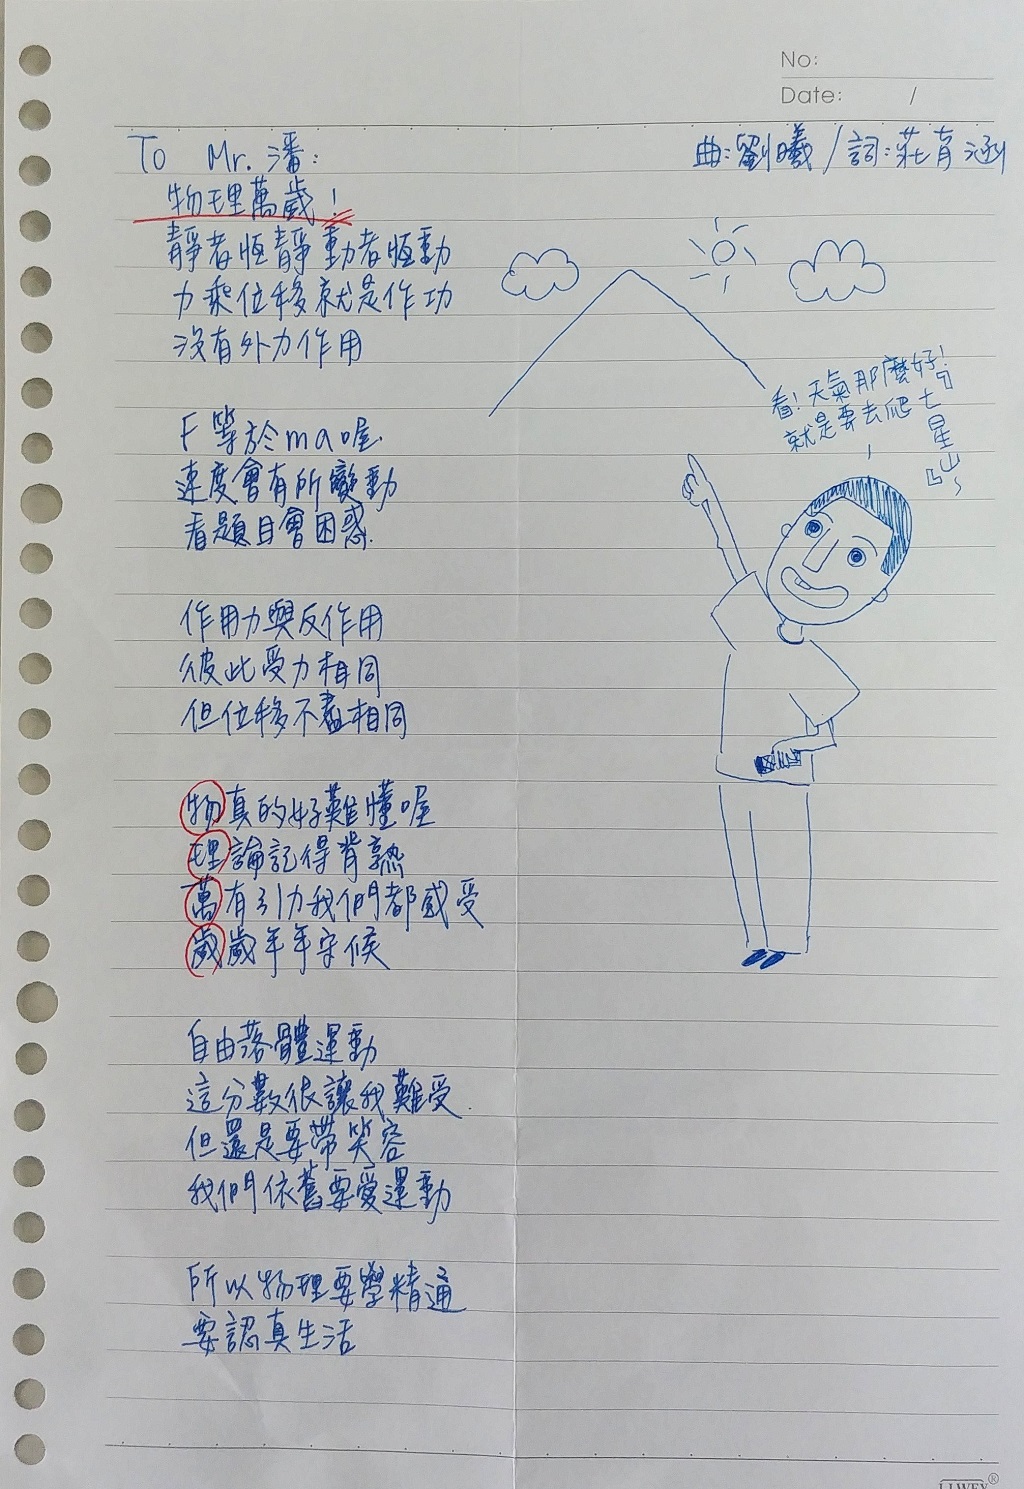 No:
Date: /
To Mr. 潘:
曲:劉曦/詞:莊育涵
物理萬歲!
靜者恆靜 動者恆動
力乘位移就是作功
沒有外力作用
F 等於ma喔
速度會有所變動
看題目會困惑
作用力與反作用
彼此受力相同
但位移不盡相同
物真的好難懂喔
理論記得背熟
萬有引力我們都感受
歲歲年年守候
自由落體運動
這分數很讓我難受
但還是要帶笑容
我們依舊要愛運動
所以物理要學精通
要認真生活
看!天氣那麼好!
就是要去爬「七星山」~